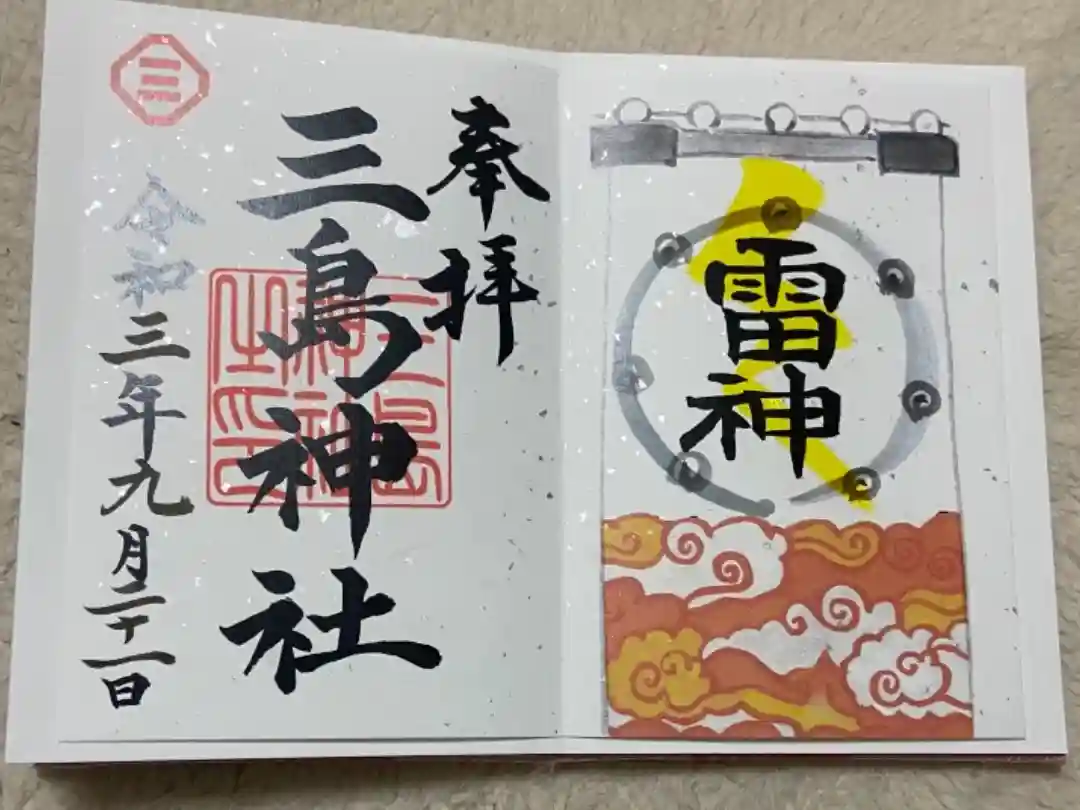 雷神
奉拝
三島神社
三島
神社
之印
三
令和三年九月二十一日